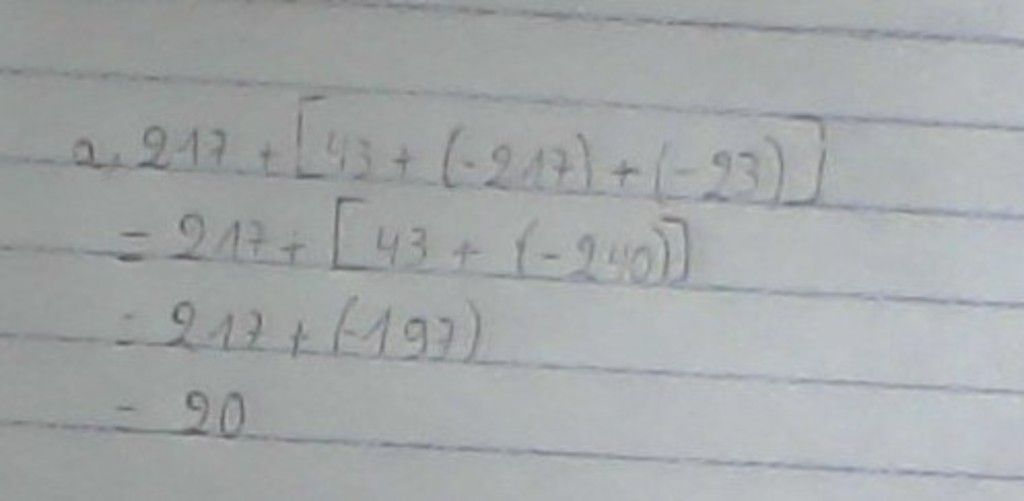 a, 217 + [43 + (-217) + (-23)]
= 217 + [43 + (-240)]
= 217 + (-197)
= 20